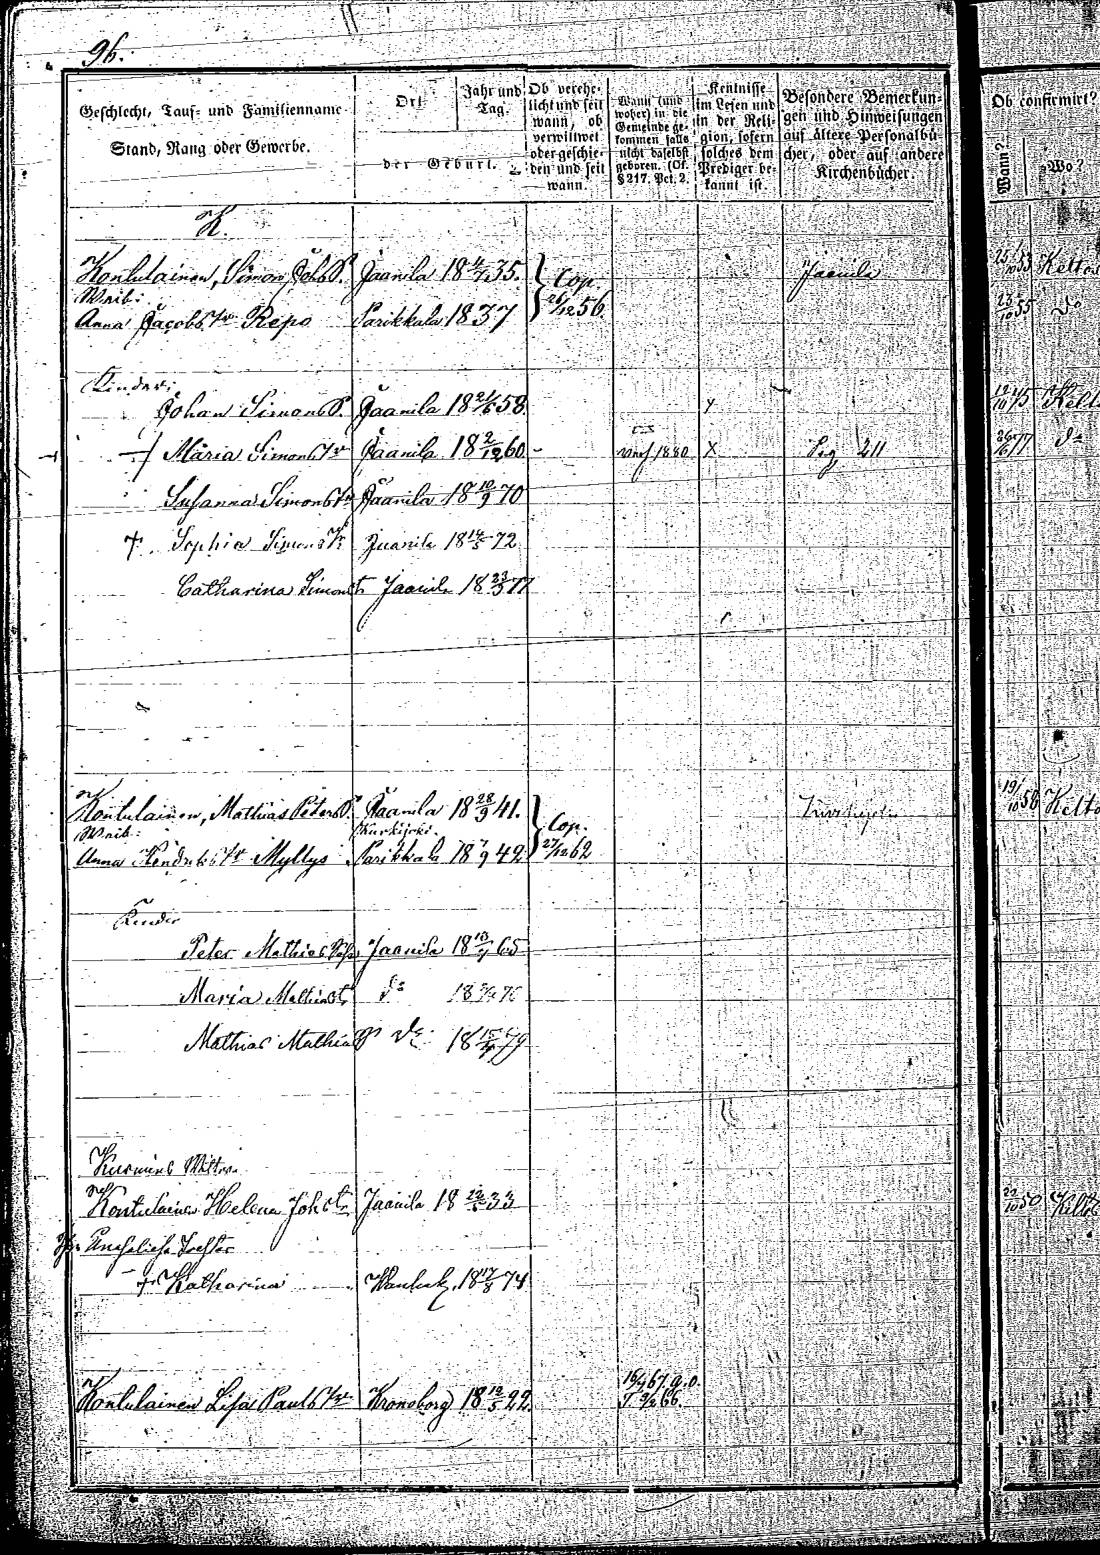 96.
Geschlecht, Tauf- und Familienname
Stand, Rang oder Gewerbe.
Ort
Jahr und Tag.
der Geburt.
Ob verehelicht und seit wann, ob verwittwet oder geschieden und seit wann.
Wann (und woher) in die Gemeinde gekommen falls nicht daselbst geboren.
§ 217. Pct. 2.
Kentnisse im Lesen und in der Religion, sofern solches dem Prediger bekannt ist.
Besondere Bemerkungen und Hinweisungen auf ältere Personalbücher, oder auf andere Kirchenbücher.
Ob confirmirt?
Wann?
Wo?
K.
Kontulainen, Simon Joh. S. Jaanila 18 4/7 35. Cop. 26/12 56. Jaanila Kelto
Weib:
Anna Jacobs Tr Repo Parikkala 1837 23/10 55 do
Kinder:
Johan Simons S. Jaanila 18 58 Kelt
Maria Simons Tr Jaanila 18 2/12 60 1880 X 211 77 do
Susanna Simons Tr Jaanila 18 10/9 70
† Sophia Simons Jaanila 18 14/5 72
Catharina Simons t. Jaanila 18 23/3 77
Kontulainen, Mathias Peters S. Jaanila 18 28/9 41. Cop. 27/12 62 19/10 58 Kelto
Weib: Kurkijoki.
Anna Hendriks Tr Myllys Parikkala 18 7/9 42
Kinder
Peter Mathias Jaanila 18 65
Maria Mathias t. do 18 76
Mathias Mathias do 18 79
Kontulainen Helena Joh. t. Jaanila 18 33 22/10 50 Kelto
Uneheliche Tochter
† Katharina 18 17/8 74
Kontulainen Lisa Pauls Tr Kronoborg 18 12/5 22. 16/4 67 a. o.
T. 9/2 66.